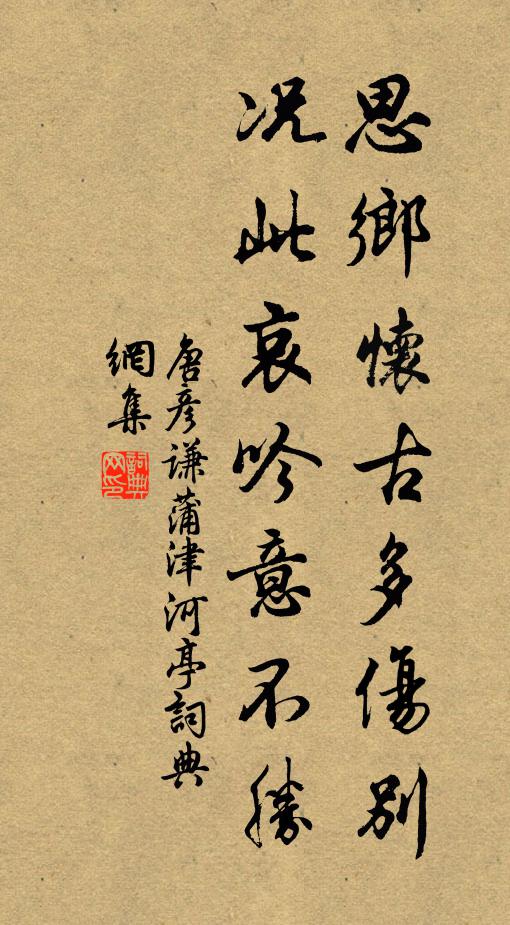 思鄉懷古多傷別
况此哀吟意不勝
唐彥謙蒲津河亭詞典
網集
詞典
网印